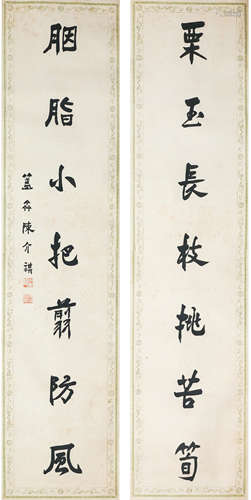 栗玉長枝挑苦筍
胭脂小把翦防風
簠斎陳介祺